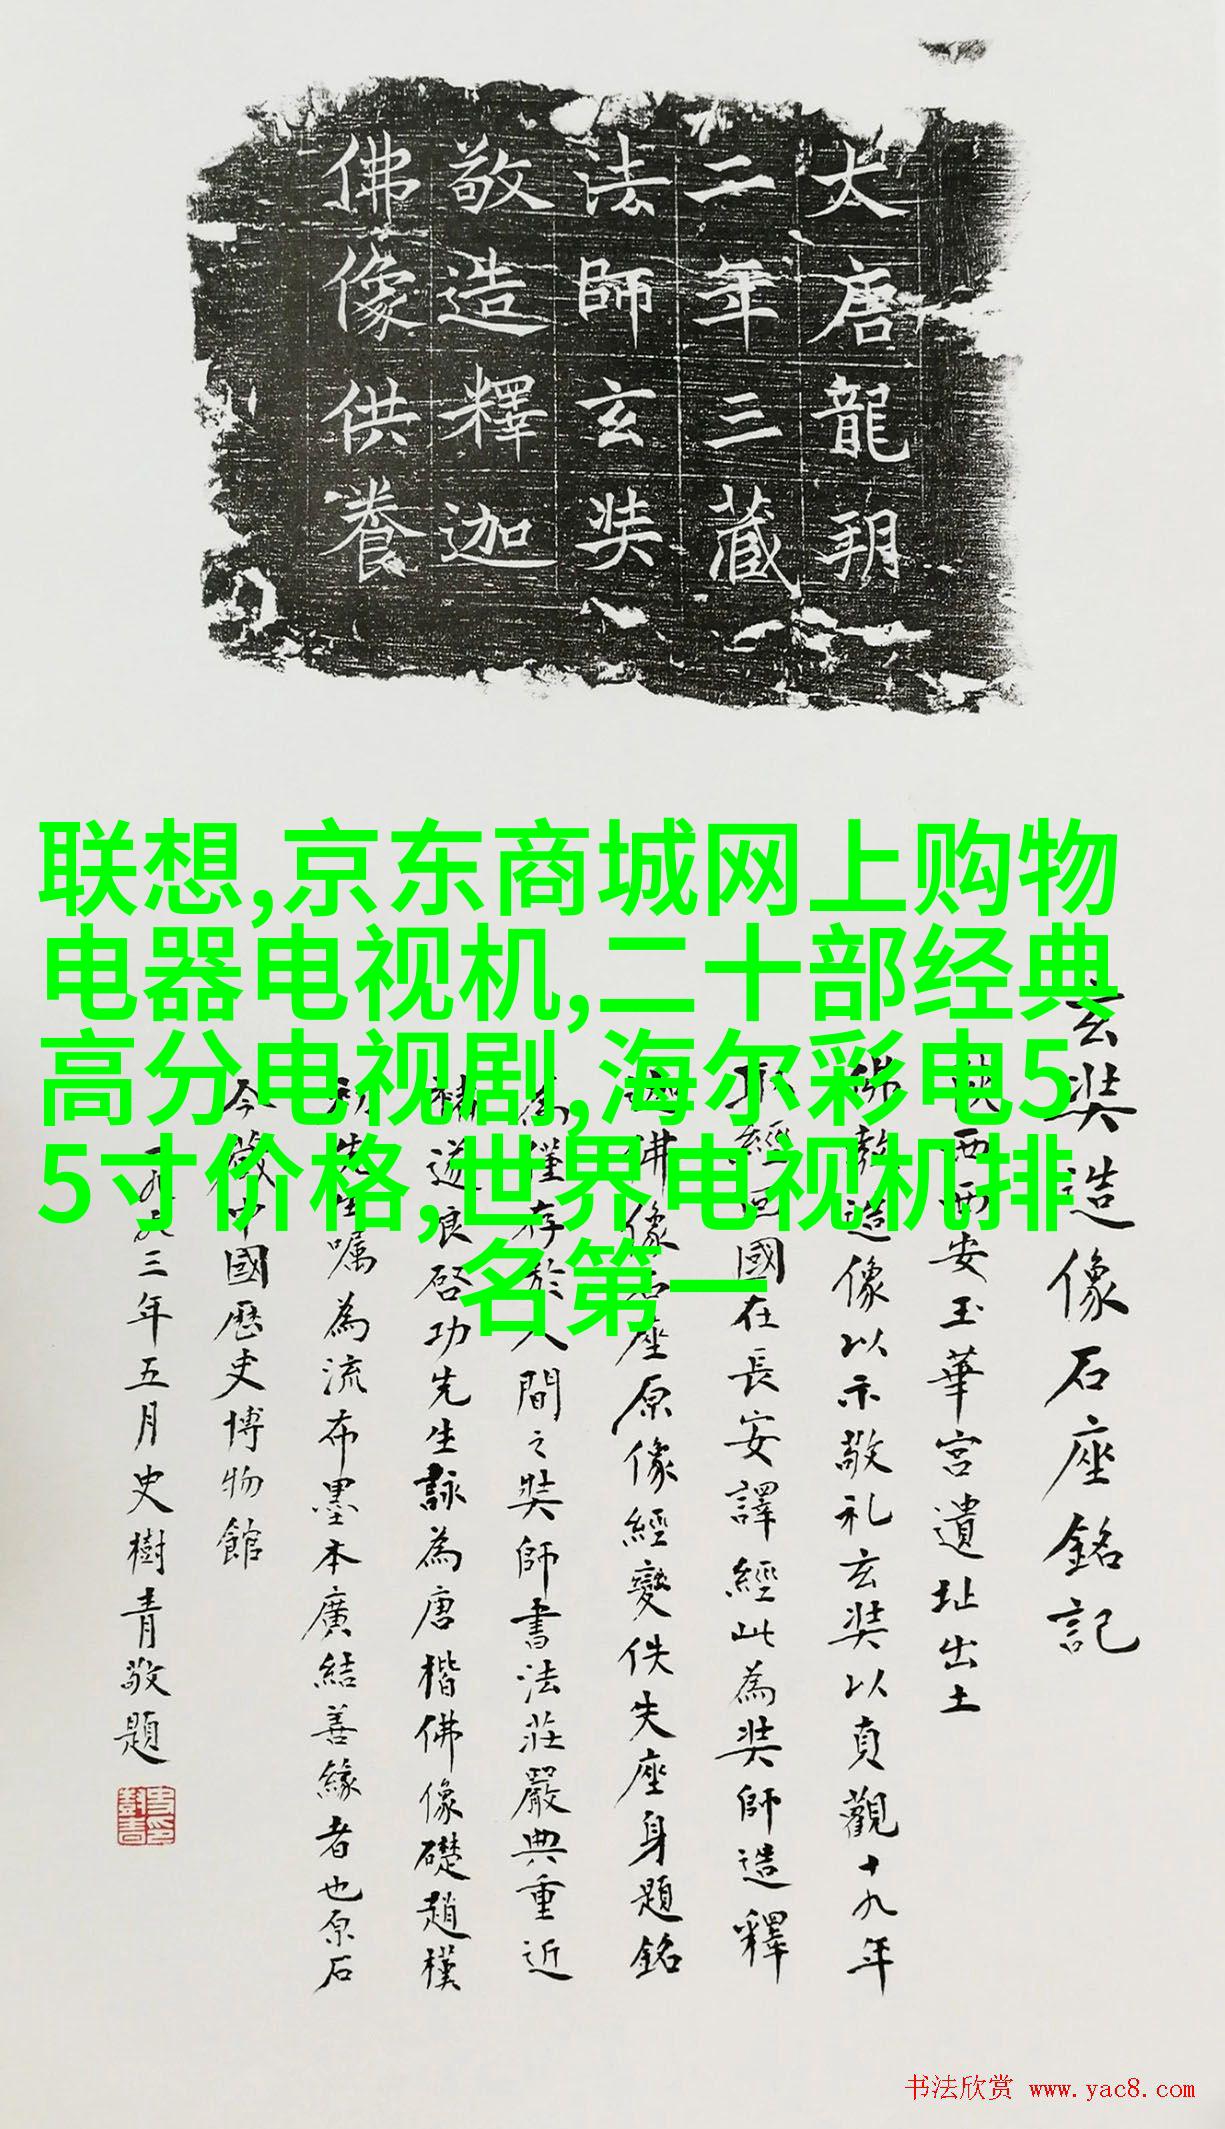 大唐龍朔
二年三藏
法師玄奘
敬造釋迦
佛像供養
联想,京东商城网上购物
电器电视机,二十部经典
高分电视剧,海尔彩电5
5寸价格,世界电视机排
名第一
玄奘造像石座銘記
西西安玉華宮遺址出土
造像以示敬礼玄奘以貞觀十九年
經國在長安譯經此為奘師造釋
佛像石座原像經變佚失座身題銘
僅存於人間之奘師書法莊嚴典重近
啓功先生詠為唐楷佛像礎趙樸
先生囑為流布墨本廣結善緣者也原石
今藏中國歷史博物館
一九九三年五月史樹青敬題
书法欣赏 www.yac8.com